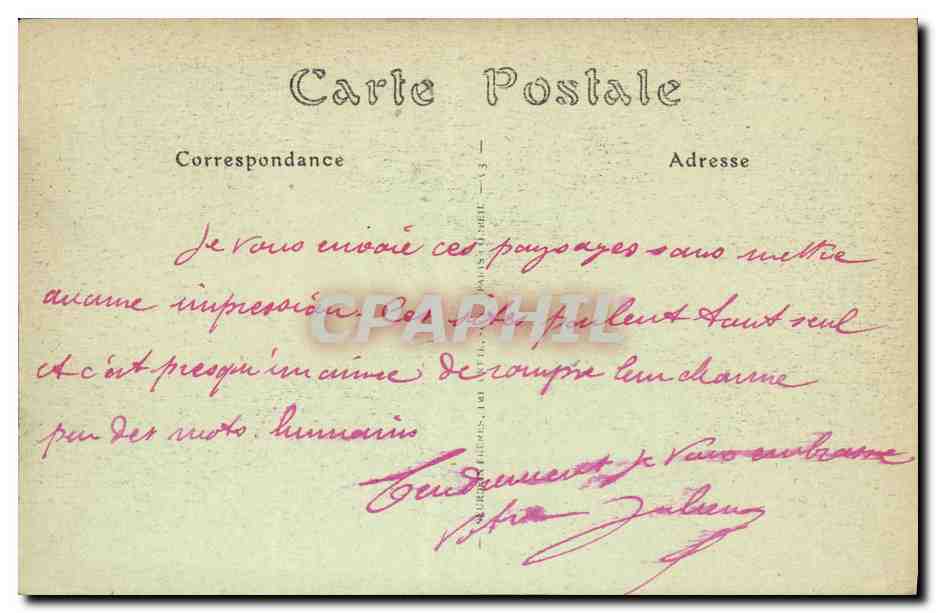 Carte Postale
Correspondance
Adresse
Je vous envoie ces paysages sans mettre
aucune impression. Ces sites parlent tout seul
et c'est presqu'un crime de rompre leur charme
par des mots humains
Tendrement je vous embrasse
Votre Julien
CPAPHIL